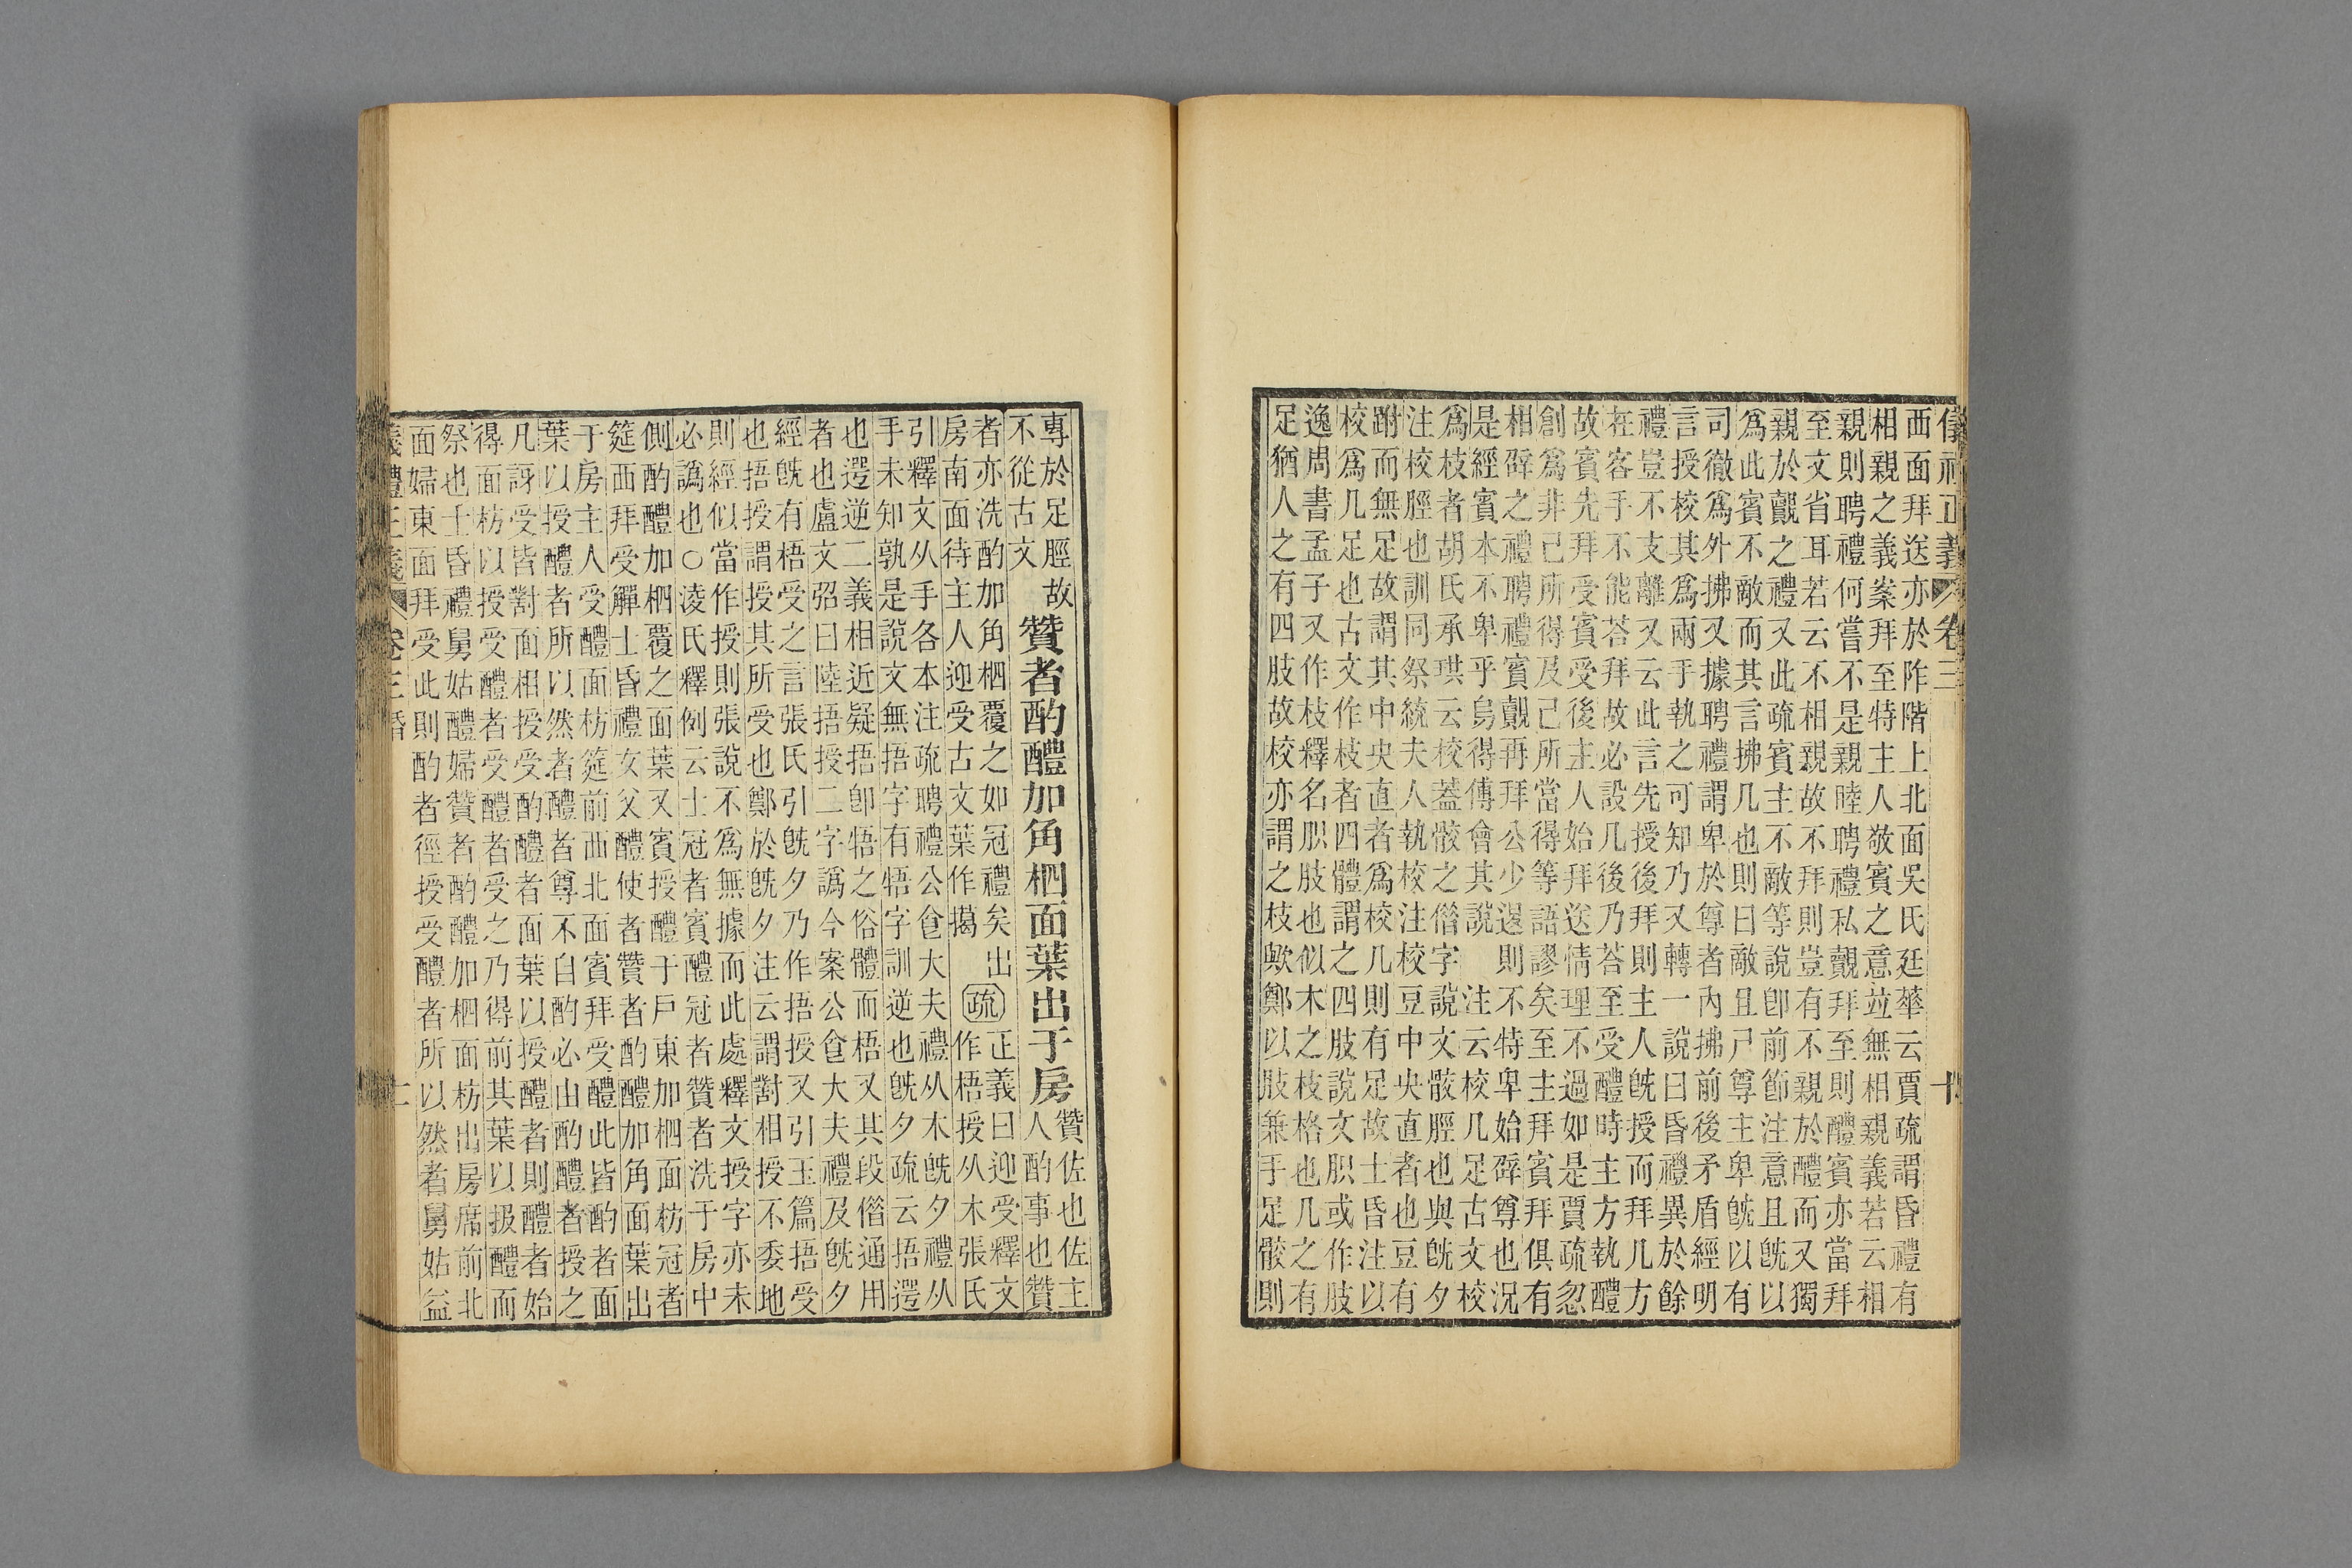 儀禮正義 卷三 十
西面拜送亦於阼階上北面吳氏廷華云賈疏謂昏禮有
相親之義案拜至特主人敬賓之意竝無相親義若云相
親則聘禮何嘗不是親睦聘禮私覿拜至則醴賓亦當拜
至文省耳若云不相親故不拜則豈有不親於醴而又獨
親於覿之禮又此疏賓主不敵等說卽前節注意且旣以
爲此賓不敵而其言拂几也則曰敵且尸尊主卑旣以有
司徹爲外拂又據聘禮謂卑於尊者內拂前後矛盾經明
言授校其爲兩手執之可知乃又轉一說曰昏禮異於餘
禮豈不支離又云此言先授後拜則主人旣授而拜几方
在客手不能荅拜故必設几後乃荅至受醴時主方執醴
故賓先拜受賓受後主人始拜送情理不過如是賈疏忽
創爲非已所得及己所當得等語謬矣至主拜賓拜俱有
相辟之禮聘禮賓覿再拜公少退則不特卑始辟尊也況
是經賓本不卑乎烏得傅會其說 注云校几足古文校
爲枝者胡氏承珙云校蓋骹之借字說文骹脛也與旣夕
注校脛也訓同祭統夫人執校注校豆中央直者也豆有
跗而無足故謂其中央直者爲校几則有足故士昏注以
校爲几足也古文作枝者四體謂之四肢說文胑或作肢
逸周書孟子又作枝釋名胑肢也似木之枝格也几之有
足猶人之有四肢故校亦謂之枝歟鄭以肢兼手足骹則
專於足脛故
不從古文
贊者酌醴加角柶面葉出于房
贊佐也佐主
人酌事也贊
者亦洗酌加角柶覆之如冠禮矣出
房南面待主人迎受古文葉作擖
疏
正義曰迎受釋文
作梧授从木張氏
引釋文从手各本注疏聘禮公食大夫禮从木旣夕禮从
手未知孰是說文無捂字有牾字訓逆也旣夕疏云捂遻
也遻逆二義相近疑捂卽牾之俗體而梧又其段借通用
者也盧文弨曰陸捂授二字譌今案公食大夫禮及旣夕
經旣有梧受之言張氏引旣夕乃作捂授又引玉篇捂受
也捂授謂授其所受也鄭於旣夕注云謂對相授不委地
則經似當作授則張說不爲無據而此處釋文授字亦未
必譌也○淩氏釋例云士冠者賓醴冠者贊者洗于房中
側酌醴加柶覆之面葉又賓授醴于戶東加柶面枋冠者
筵西拜受觶士昏禮女父醴使者贊者酌醴加角面葉出
于房主人受醴面枋筵前西北面賓拜受醴此皆酌者面
葉以授醴者所以然者醴者尊不自酌必由酌醴者授之
凡訝受皆對面相授受酌醴者面葉以授醴者則醴者始
得面枋以授受醴者受醴者受之乃得前其葉以扱醴而
祭也士昏禮舅姑醴婦贊者酌醴加柶面枋出房席前北
面婦東面拜受此則酌者徑授受醴者所以然者舅姑益